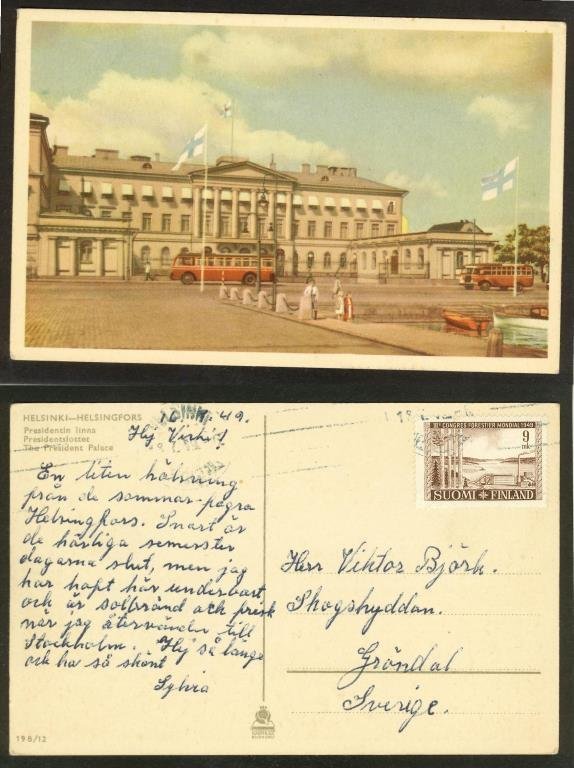 HELSINKI—HELSINGFORS
Presidentin linna
Presidentslottet
The President Palace
Hej
En liten hälsning
från de sommar-fagra
Helsingfors. Snart är
de härliga semester
dagarna slut, men jag
har haft här underbart
och är solbränd och frisk
när jag återvänder till
Stockholm. Hej så länge
och ha så skönt
Sylvia
198/12
III. CONGRES FORESTIER MONDIAL 1949
9
mk
SUOMI FINLAND
Herr Viktor Björk.
Skogshyddan.
Gröndal
Sverige.